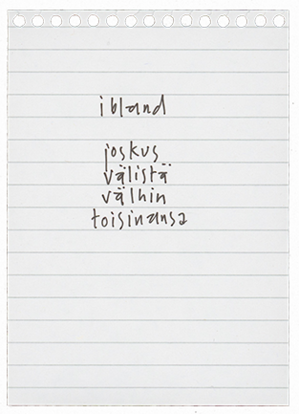 ibland
joskus
välistä
välhin
toisinansa